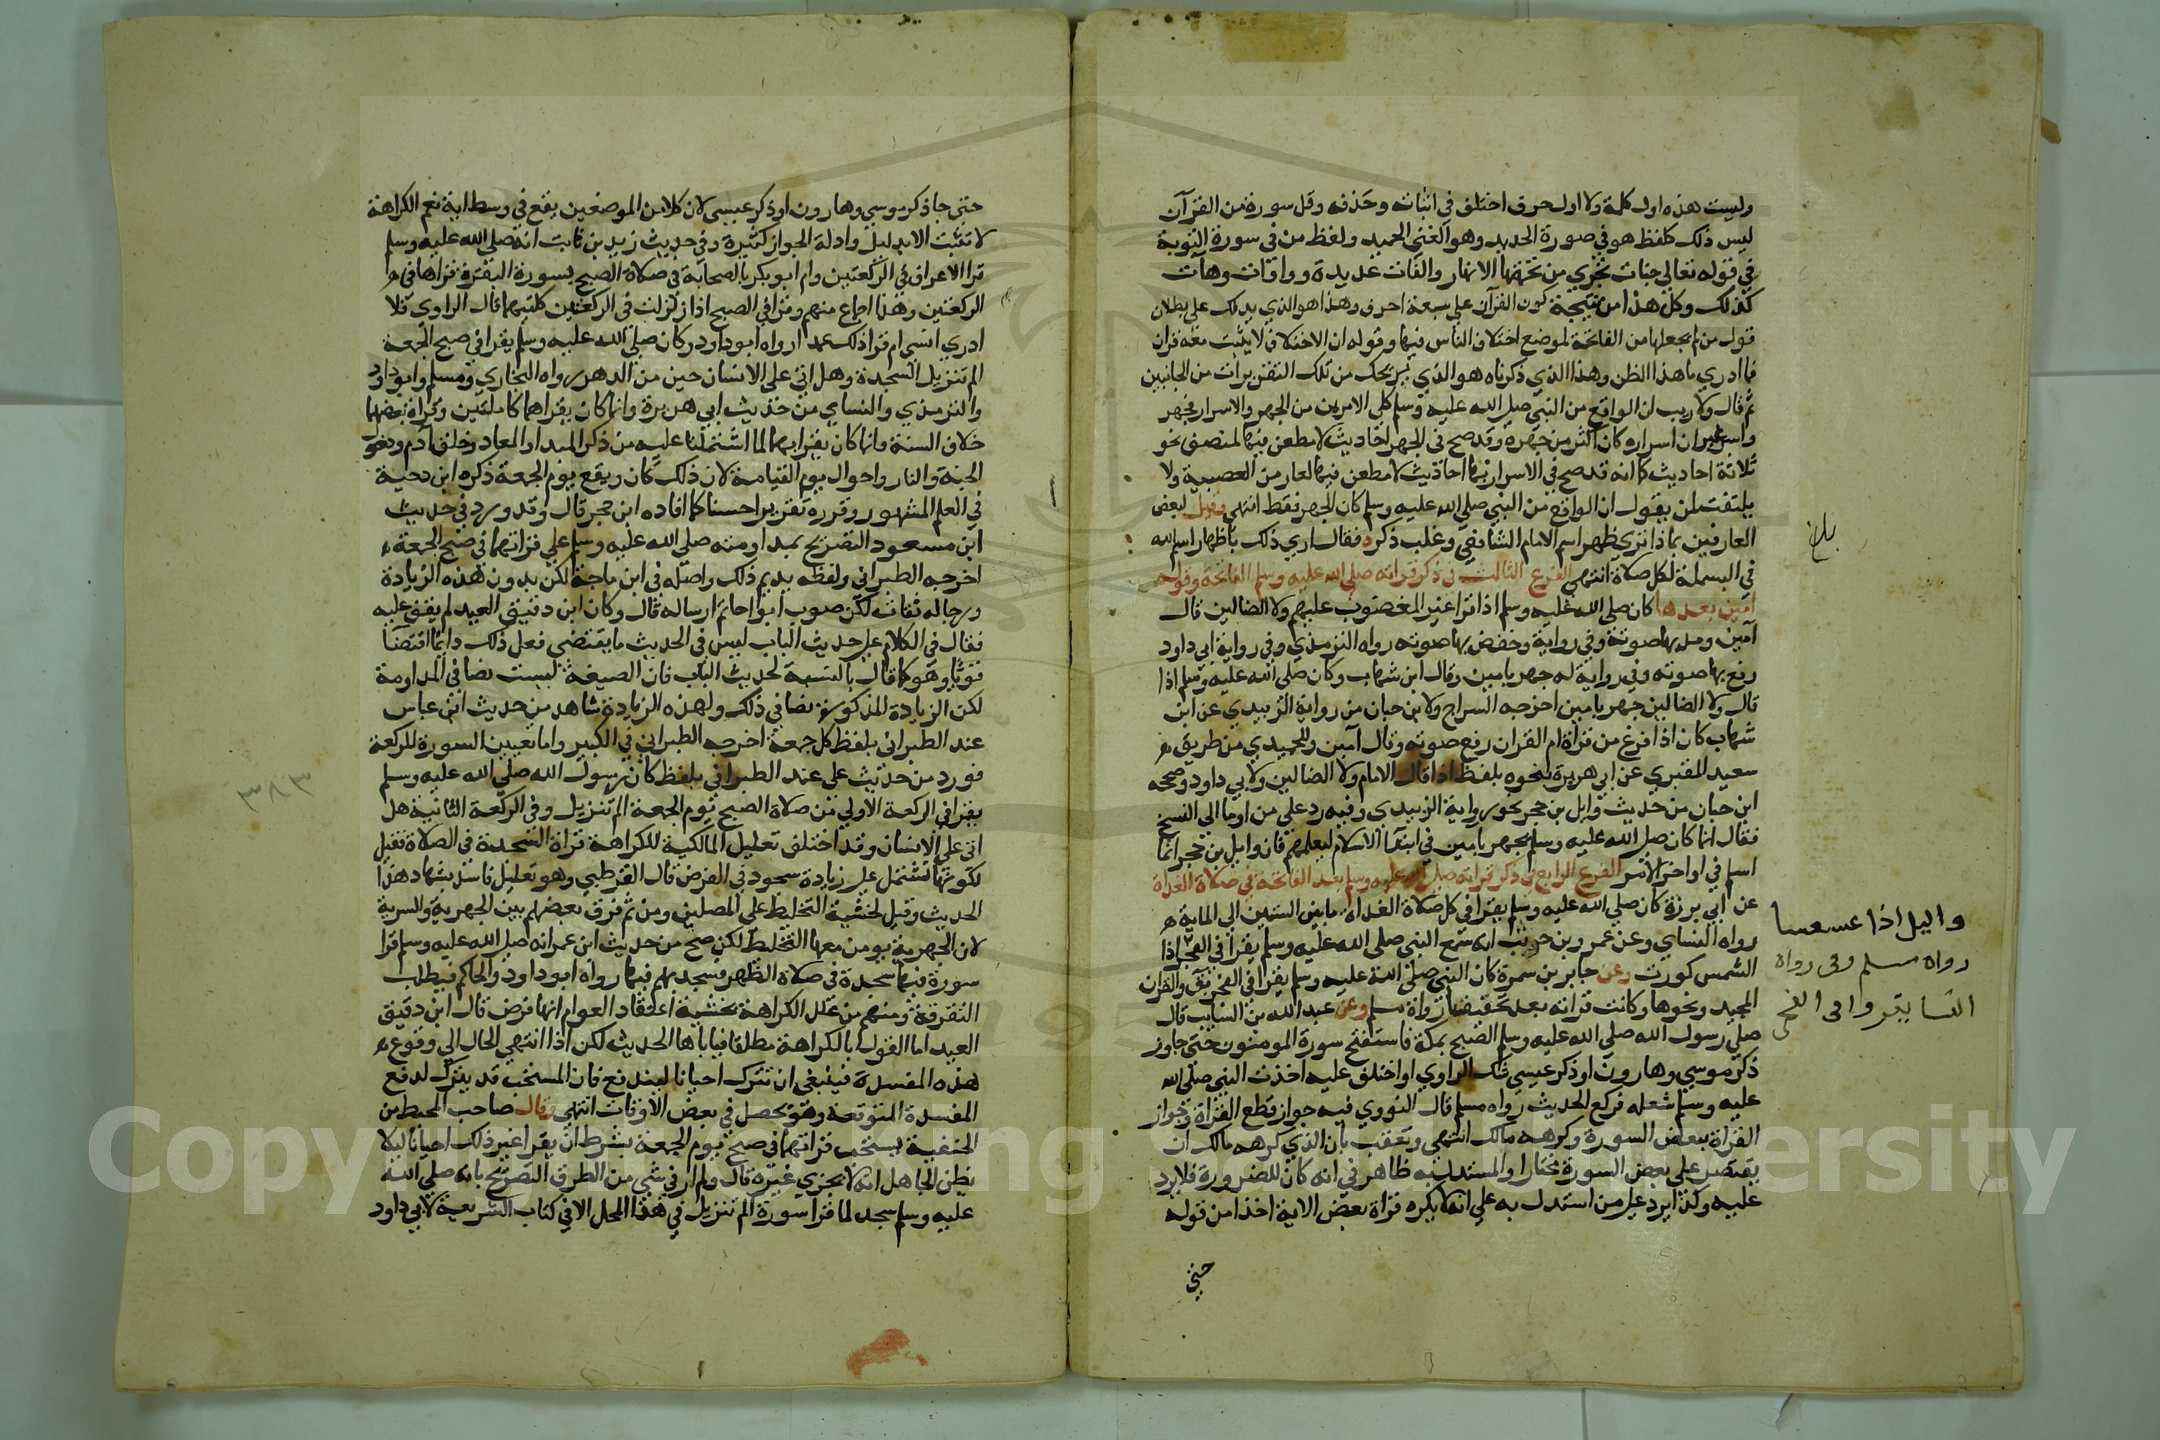 وليست هذه اول كلمة ولا اول حرف اختلف في اثباته وحذفه وقل سورة من القرآن
ليس ذلك كلفظ هو في سورة الحديد وهو الغني الحميد ولفظ من في سورة التوبة
في قوله تعالى جنات تجري من تحتها الانهار والفات عديدة وواوات وهاآت
كذلك وكل هذا من نتيجة كون القرآن على سبعة احرف وهذا هو الذي يدلك على بطلان
قول من لم يجعلها من الفاتحة لموضع اختلاف الناس فيها وقوله ان الاختلاف لا يثبت معه قران
فما ادري ما هذا الظن وهذا الذي ذكرناه هو الذي يريحك من تلك التقريرات من الجانبين
ثم قال ولا ريب ان الواقع من النبي صلى الله عليه وسلم كلي الامرين من الجهر والاسرار فجهر
واسر غير ان اسراره كان اكثر من جهره وقد صح في الجهر احاديث لا مطعن فيها لمنصف نحو
ثلاثة احاديث كما انه قد صح في الاسرار بها احاديث لا مطعن فيها لعار من العصبية ولا
يلتفت لمن يقول ان الواقع من النبي صلى الله عليه وسلم كان الجهر فقط انتهى وقيل لبعض
العارفين بماذا ترى ظهر اسم الامام الشافعي وغلب ذكره فقال ارى ذلك باظهار اسم الله
في البسملة لكل صلاة انتهى الفرع الثالث في ذكر قراته صلى الله عليه وسلم الفاتحة وقوله
آمين بعدها كان صلى الله عليه وسلم اذا قرا غير المغضوب عليهم ولا الضالين قال
آمين ومد بها صوته وفي رواية وخفض بها صوته رواه الترمذي وفي رواية ابي داود
رفع بها صوته وفي رواية له جهر بامين وقال ابن شهاب وكان صلى الله عليه وسلم اذا
قال ولا الضالين جهر بامين اخرجه السراج ولابن حبان من رواية الزبيدي عن ابن
شهاب كان اذا فرغ من قراة ام القران رفع صوته وقال آمين وللحميدي من طريق
سعيد المقبري عن ابي هريرة بنحوه بلفظ اذا قال الامام ولا الضالين ولابي داود وصححه
ابن حبان من حديث وايل بن حجر نحو رواية الزبيدي وفيه رد على من اوما الى النسخ
فقال انما كان صلى الله عليه وسلم يجهر بامين في ابتدآ الاسلام ليعلمهم فان وايل بن حجر انما
اسلم في اواخر الامر الفرع الرابع في ذكر قراته صلى الله عليه وسلم بعد الفاتحة في صلاة الغداة
عن ابي برزة كان صلى الله عليه وسلم يقرا في كل صلاة الغداة ما بين الستين الى الماية
رواه النساي وعن عمرو بن حريث انه سمع النبي صلى الله عليه وسلم يقرا في الفجر اذا
الشمس كورت وعن جابر بن سمرة كان النبي صلى الله عليه وسلم يقرا في الفجر بق والقران
المجيد ونحوها وكانت قراته بعد تخفيفا رواه مسلم وعن عبد الله بن السايب قال
صلى رسول الله صلى الله عليه وسلم الصبح بمكة فاستفتح سورة المومنون حتى جاوز
ذكر موسى وهارون او ذكر عيسى شك الراوي او اختلف عليه اخذت النبي صلى الله
عليه وسلم سعله فركع الحديث رواه مسلم قال النووي فيه جواز قطع القراة وجواز
القراة ببعض السورة وكرهه مالك انتهى وتعقب بان الذي كرهه مالك ان
يقتصر على بعض السورة مختارا والمستدل به ظاهر في انه كان للضرورة فلا يرد
عليه وكذا يرد على من استدل به على انه لا يكره قراة بعض الاية اخذا من قوله
حتى
والليل اذا عسعس
رواه مسلم وفي رواة
النسا يقروا في الفجر
حتى جا ذكر موسى وهارون او ذكر عيسى لان كلا من الموضعين يقع في وسط اية نعم الكراهة
لا تثبت الا بدليل وادلة الجواز كثيرة وفي حديث زيد بن ثابت انه صلى الله عليه وسلم
قرا الاعراف في الركعتين وام ابو بكر بالصحابة في صلاة الصبح بسورة البقرة قراها في
الركعتين وهذا اجماع منهم وقرا في الصبح اذا زلزلت في الركعتين كلتيهما قال الراوي فلا
ادري انسي ام قرا ذلك عمدا رواه ابو داود وكان صلى الله عليه وسلم يقرا في صبح الجمعة
الم تنزيل السجدة وهل اتى على الانسان حين من الدهر رواه البخاري ومسلم وابو داود
والترمذي والنساي من حديث ابي هريرة وانما كان يقراهما كاملتين وقراة بعضهما
خلاف السنة وانما كان يقرا بهما لما اشتملتا عليه من ذكر المبدا والمعاد وخلق آدم ودخول
الجنة والنار واحوال يوم القيامة لان ذلك كان ويقع يوم الجمعة ذكره ابن دحية
في العلم المشهور وقرره تقريرا حسنا كما افاده ابن حجر قال وقد ورد في حديث
ابن مسعود التصريح بمداومته صلى الله عليه وسلم على قراتهما في صبح الجمعة
اخرجه الطبراني ولفظه يديم ذلك واصله في ابن ماجة لكن بدون هذه الزيادة
ورجاله ثقات لكن صوب ابو حاتم ارساله قال وكان ابن دقيق العيد لم يقف عليه
فقال في الكلام على حديث الباب ليس في الحديث ما يقتضي فعل ذلك دايما اقتضآ
قويا وهو كما قال بالنسبة لحديث الباب فان الصيغة ليست نصا في المداومة
لكن الزيادة المذكورة نصا في ذلك ولهذه الزيادة شاهد من حديث ابن عباس
عند الطبراني بلفظ كل جمعة اخرجه الطبراني في الكبير واما تعيين السورة للركعة
فورد من حديث علي عند الطبراني بلفظ كان رسول الله صلى الله عليه وسلم
يقرا في الركعة الاولى من صلاة الصبح يوم الجمعة الم تنزيل وفي الركعة الثانية هل
اتى على الانسان وقد اختلف تعليل المالكية للكراهة قراة السجدة في الصلاة فقيل
لكونها تشتمل على زيادة سجود في الفرض قال القرطبي وهو تعليل فاسد بشهادة هذا
الحديث وقيل لخشية التخليط على المصلين ومن ثم فرق بعضهم بين الجهرية والسرية
لان الجهرية يومن معها التخليط لكن صح من حديث ابن عمر انه صلى الله عليه وسلم قرا
سورة فيها سجدة في صلاة الظهر فسجد بهم فيها رواه ابو داود والحاكم فبطلت
التفرقة ومنهم من علل الكراهة بخشية اعتقاد العوام انها فرض قال ابن دقيق
العيد اما القول بالكراهة مطلقا فياباها الحديث لكن اذا انتهى الحال الى وقوع
هذه المفسدة فينبغي ان تترك احيانا ليندفع فان المستحب قد يترك لدفع
المفسدة المتوقعة وهو يحصل في بعض الاوقات انتهى وقال صاحب المحيط من
الحنفية يستحب قراتهما في صبح يوم الجمعة بشرط ان يقرا غير ذلك احيانا ليلا
يظن الجاهل انه لا يجزي غيره قال ولم ار في شي من الطرق التصريح بانه صلى الله
عليه وسلم سجد لما قرا سورة الم تنزيل في هذا المحل الا في كتاب الشريعة لابي داود
٣٨٣